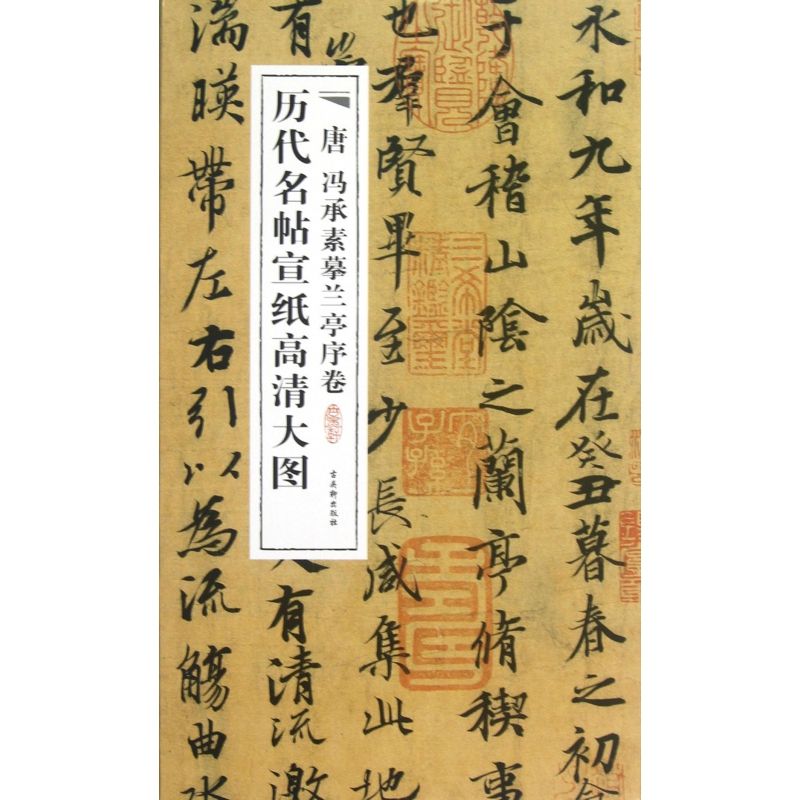 永和九年歲在癸丑暮春之初
于會稽山陰之蘭亭脩稧事
也羣賢畢至少長咸集此地
有
有清流激
湍暎帶左右引以為流觴曲水
唐 冯承素摹兰亭序卷
历代名帖宣纸高清大图
古吴轩出版社
三希堂
精鑑璽
宜子孫